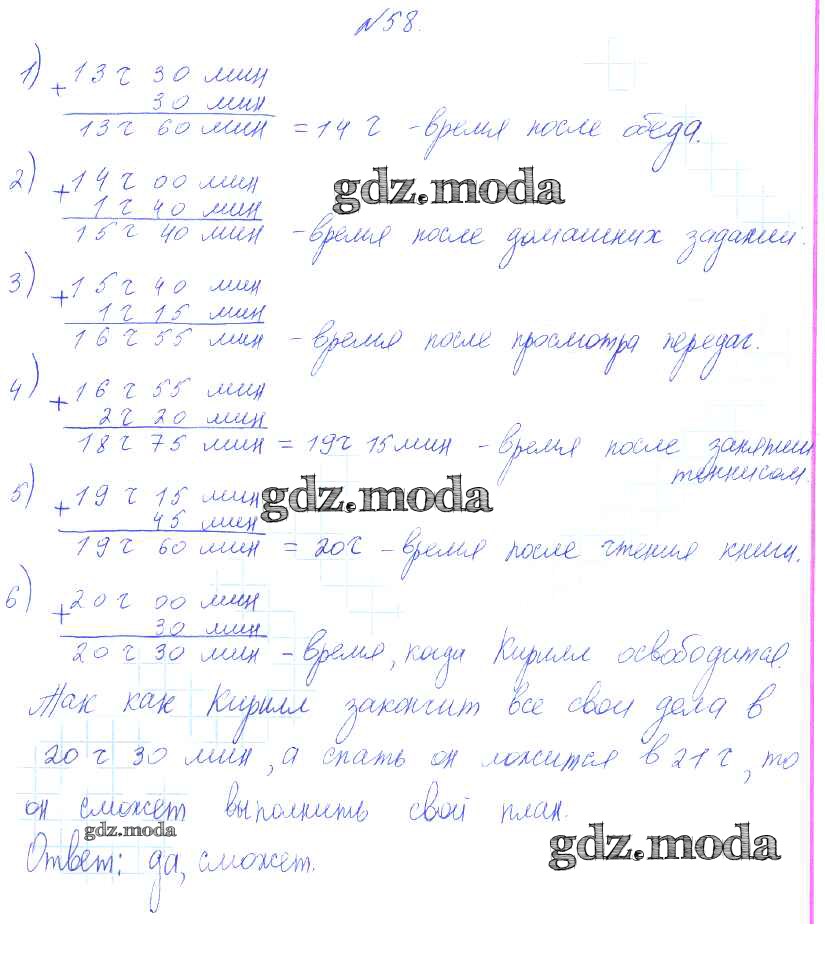 №58.
1) + 13 ч 30 мин
30 мин
13 ч 60 мин = 14 ч - время после обеда.
2) + 14 ч 00 мин
gdz.moda
1 ч 40 мин
15 ч 40 мин - время после домашних заданий.
3) + 15 ч 40 мин
1 ч 15 мин
16 ч 55 мин - время после просмотра передач.
4) + 16 ч 55 мин
2 ч 20 мин
18 ч 75 мин = 19 ч 15 мин - время после занятий
теннисом.
5) + 19 ч 15 мин
gdz.moda
45 мин
19 ч 60 мин = 20 ч - время после чтения книги.
6) + 20 ч 00 мин
30 мин
20 ч 30 мин - время, когда Кирилл освободится.
Так как Кирилл закончит все свои дела в
20 ч 30 мин, а спать он ложится в 21 ч, то
он сможет выполнить свой план.
gdz.moda
Ответ: да, сможет.
gdz.moda